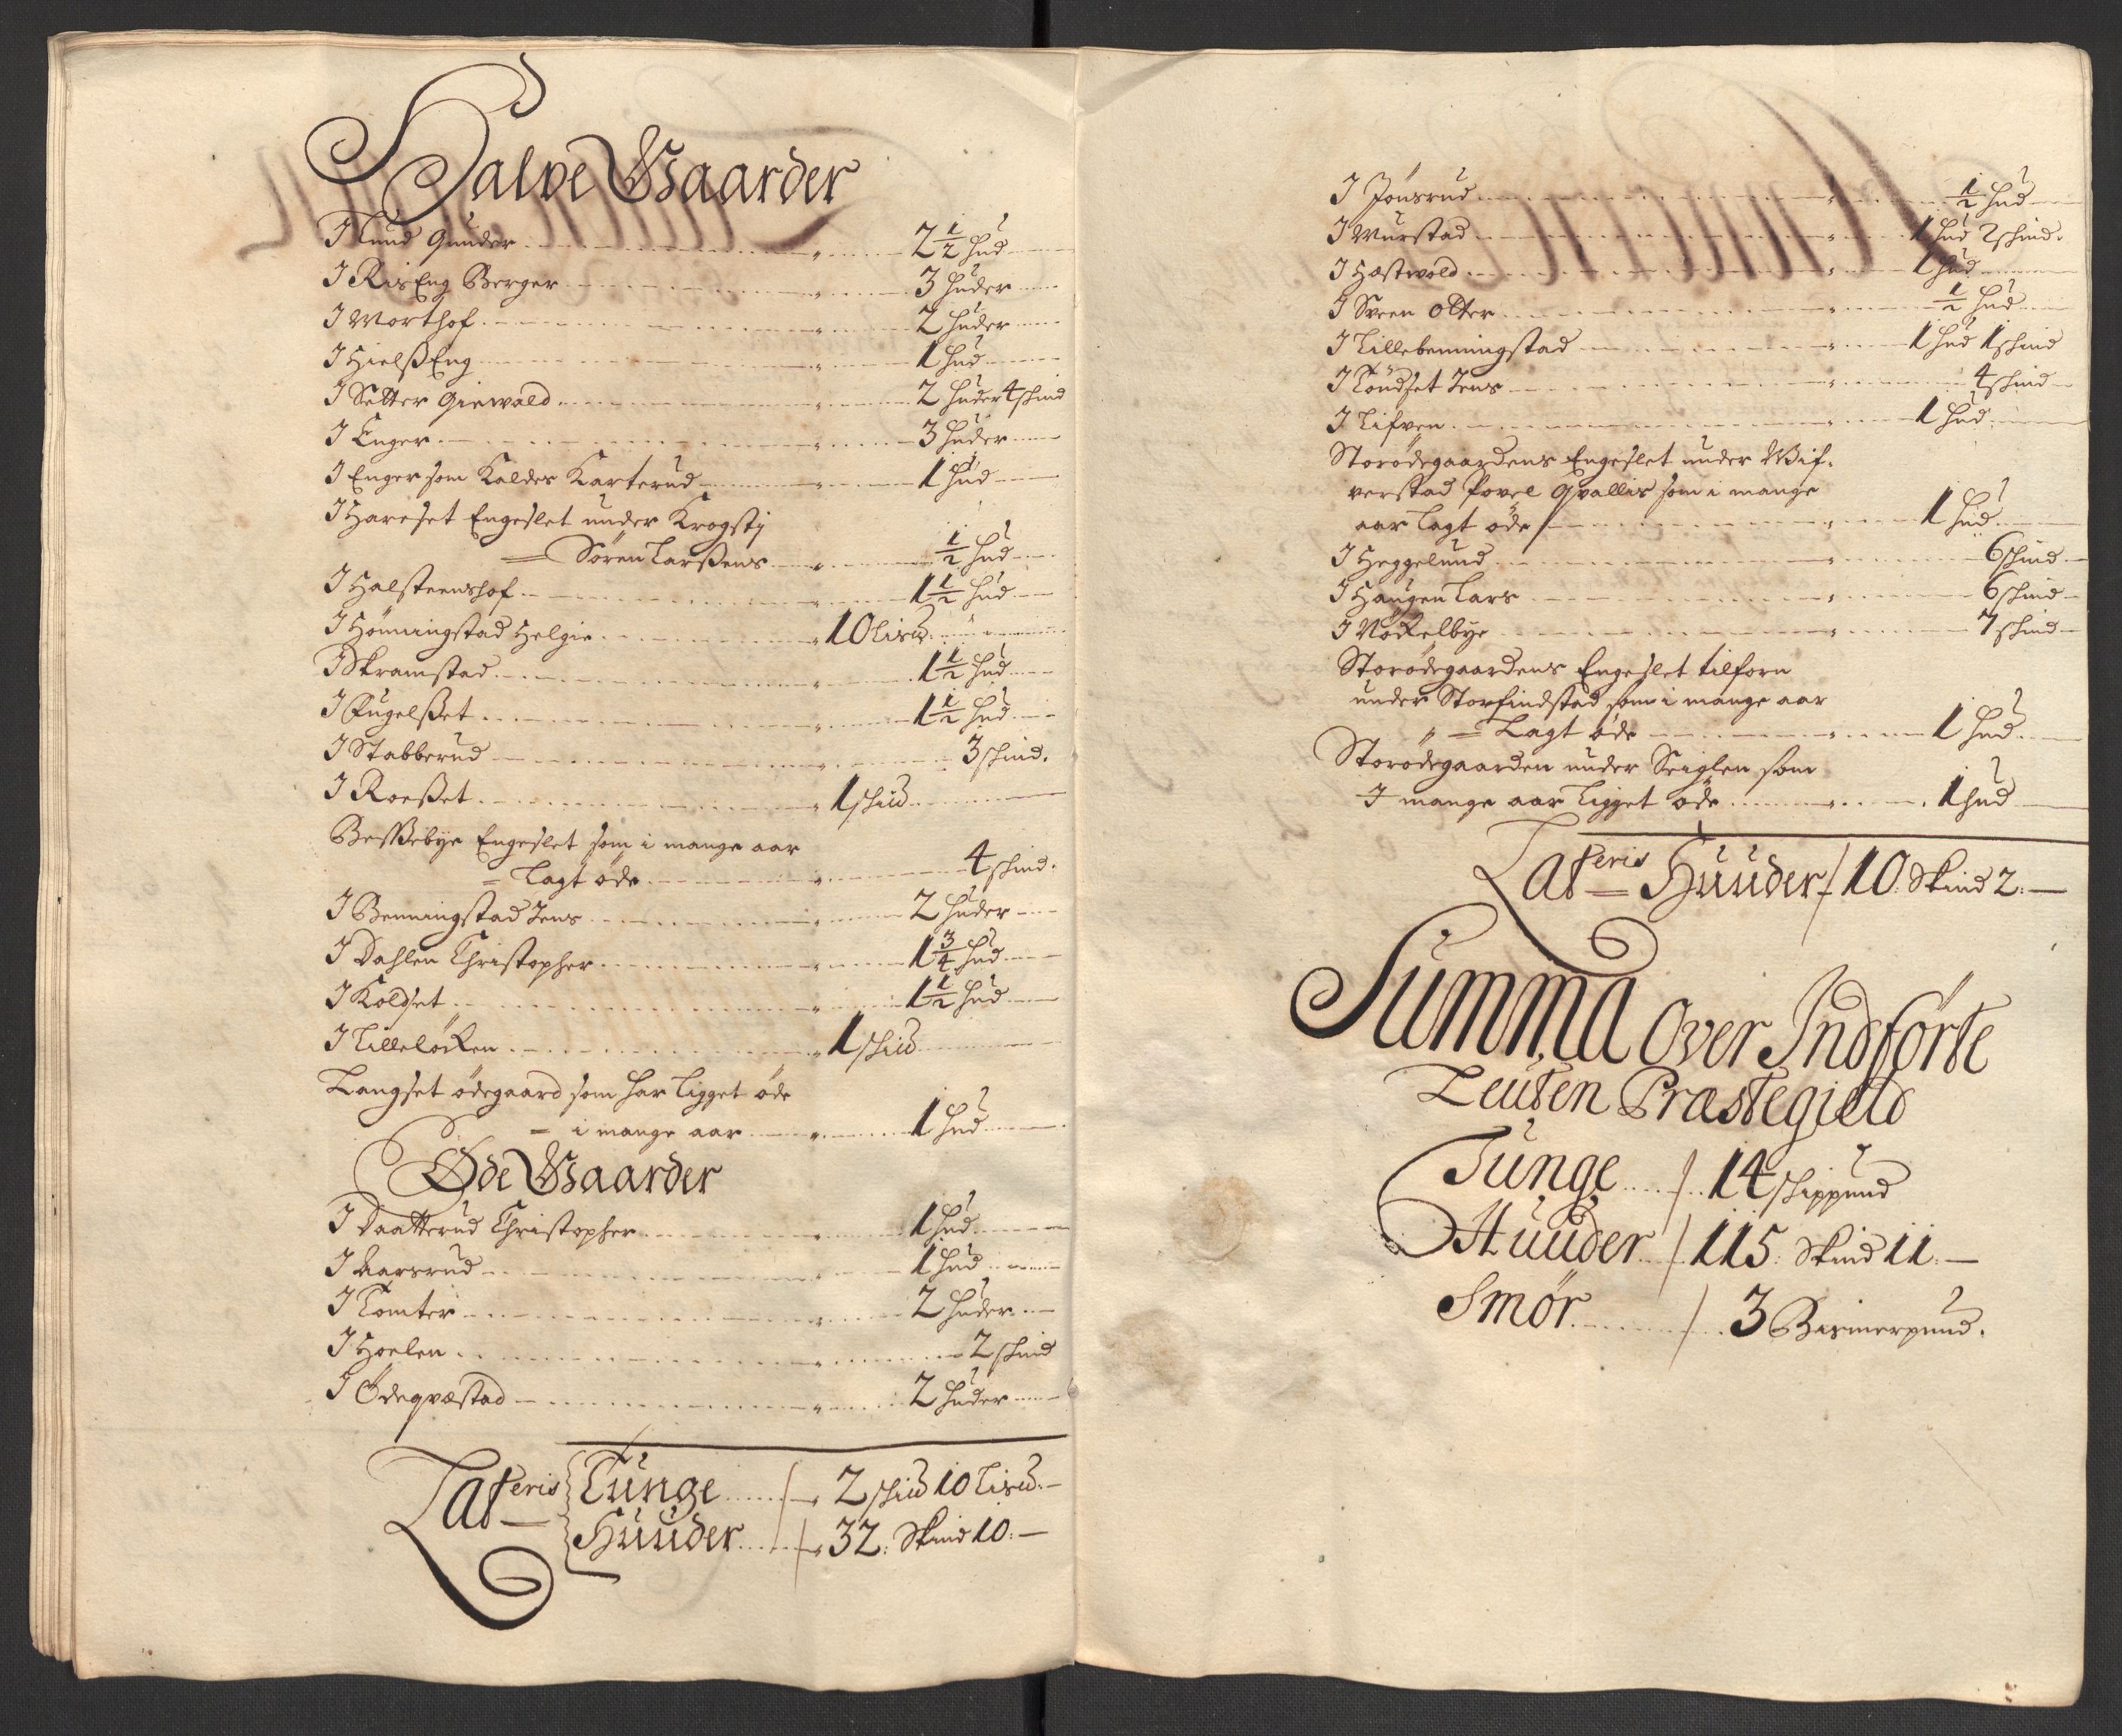 Halve Gaarder
I Lund Gunder 2 1/2 hud
I RisEng Berger 3 huder
I Worthof 2 huder
I HielßEng 1 hud
I Sætter Giewold 2 huder 4 skind
I Enger 3 huder
I Enger som Kaldes Karterud 1 hud
I Hareset Engeslet under Krogstj
= Søren Larßens 1/2 hud
I Halsteenshof 1 1/2 hud
I Hømmingstad Helgie 10 Lis℔
I Skramstad 1 1/2 hud
I Fugelßet 1 1/2 hud
I Stabberud 3 skind.
I Roeßet 1 ski℔
Beßebye Engeslet som i mange aar
= Lagt øde 4 skind.
I Benningstad Jens 2 huder
I Dahlen Christopher 1 3/4 hud
I Koldset 1 1/2 hud
I Lilleløcken 1 ski℔
Langset ødegaard som har Ligget øde
= i mange aar 1 hud
Øde Gaarder
I Daatterud Christopher 1 hud
I Aarsrud 1 hud
I Tomter 2 huder
I Hoelen 2 skind
I Ødeqvæstad 2 huder
Lateris Tunge 2 ski℔ 10 Lis℔
Huuder 32: Skind 10:
I Jønsrud 1/2 hud
I Wurstad 1 hud 2 skind.
I Hæstwold 1 hud
I Sveen Otter 1/2 hud
I Lillebenningstad 1 hud 1 skind
I Løudset Jens 4 skind
I Lifven 1 hud
Storødegaardens Engeslet under Wif-
verstad Povel Qvallis som i mange
aar Lagt øde 1 hud
I Heggelund 6 skind
I Haugen Lars 6 skind
I Nøckelbye 7 skind
Storødegaardens Engeslet tilforn
under Storfindstad som i mange aar
= Lagt øde 1 hud
Storødegaarden under Seiglen som
I mange aar Ligget øde 1 hud
Lateris Huuder 10: Skind 2:
Summa Over Indførte
Leuten Præstegield
Tunge 14 skippund
Huuder 115: Skind 11:
Smør 3 Bismerpund.